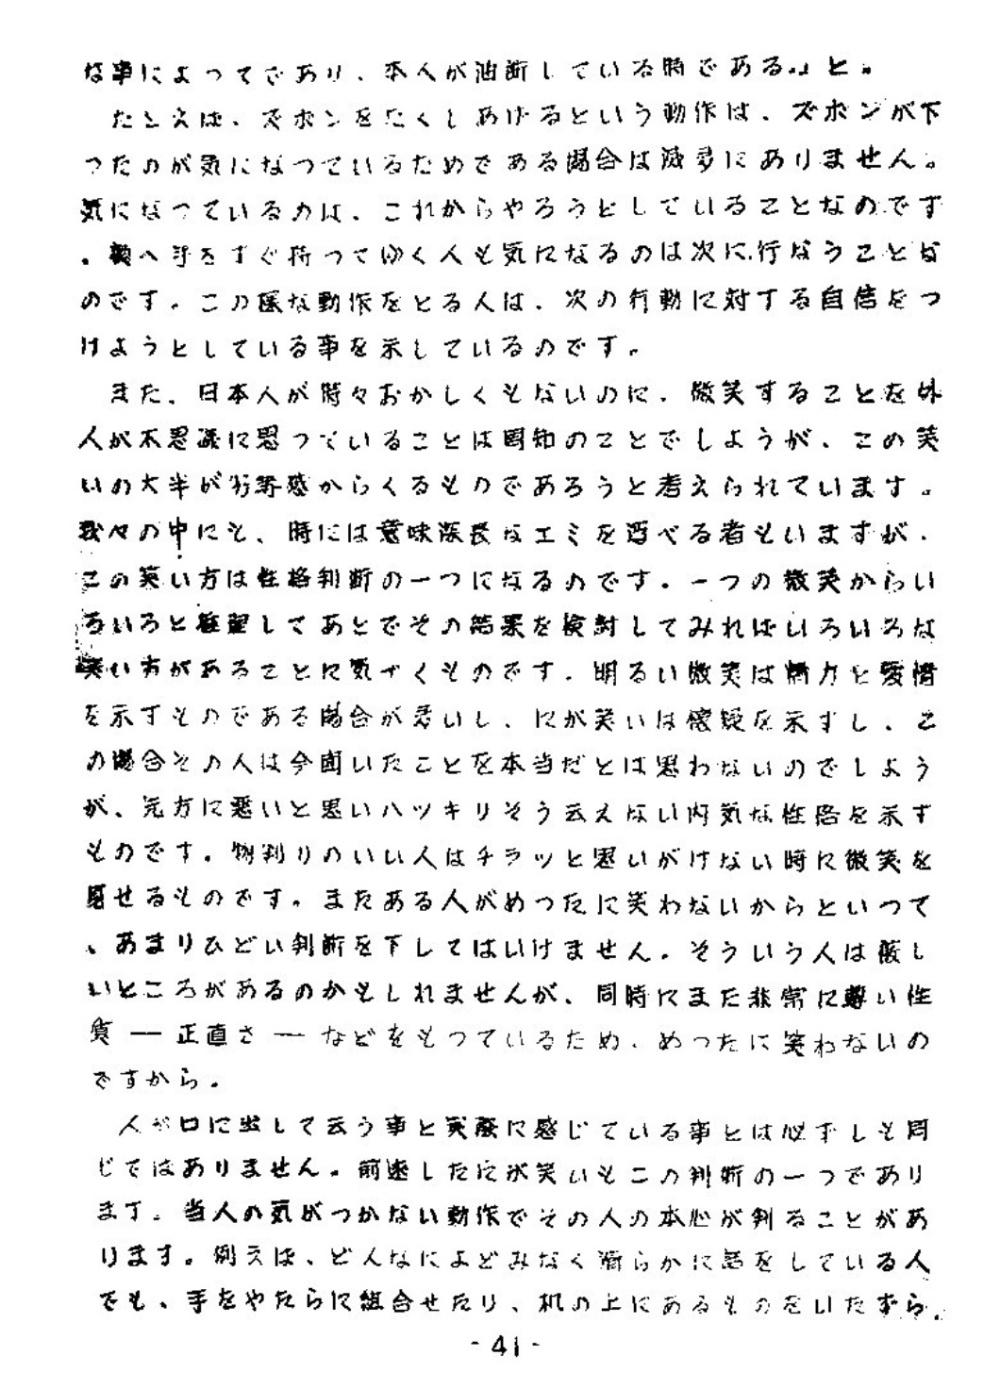 な事によつてであり、本人が油断している時である。』と。
たとえば、ズボンをたくしあげるという動作は、ズボンが下
つたのが気になつているためである場合は滅多にありません。
気になつているのは、これからやろうとしていることなのです
。額へ手をすぐ持つてゆく人も気になるのは次に行なうことな
のです。この様な動作をとる人は、次の行動に対する自信をつ
けようとしている事を示しているのです。
また、日本人が時々おかしくもないのに、微笑することを外
人が不思議に思つていることは周知のことでしようが、この笑
いの大半が劣等感からくるものであろうと考えられています。
我々の中にも、時には意味深長なエミを浮べる者もいますが、
この笑い方は性格判断の一つになるのです。一つの微笑からい
ろいろと推理してあとでその結果を検討してみればいろいろな
笑い方があることに気ずくものです。明るい微笑は精力と愛情
を示すものである場合が多いし、にが笑いは懐疑を示すし、こ
の場合その人は今聞いたことを本当だとは思わないのでしよう
が、先方に悪いと思いハツキリそう云えない内気な性格を示す
ものです。物判りのいい人はチラッと思いがけない時に微笑を
見せるものです。またある人がめつたに笑わないからといつて
、あまりひどい判断を下してはいけません。そういう人は厳し
いところがあるのかもしれませんが、同時にまた非常に尊い性
質 ― 正直さ ― などをもつているため、めつたに笑わないの
ですから。
人が口に出して云う事と実際に感じている事とは必ずしも同
じではありません。前述したにが笑いもこの判断の一つであり
ます。当人の気がつかない動作でその人の本心が判ることがあ
ります。例えば、どんなによどみなく滑らかに話をしている人
でも、手をやたらに組合せたり、机の上にあるものをいたずら
- 41 -